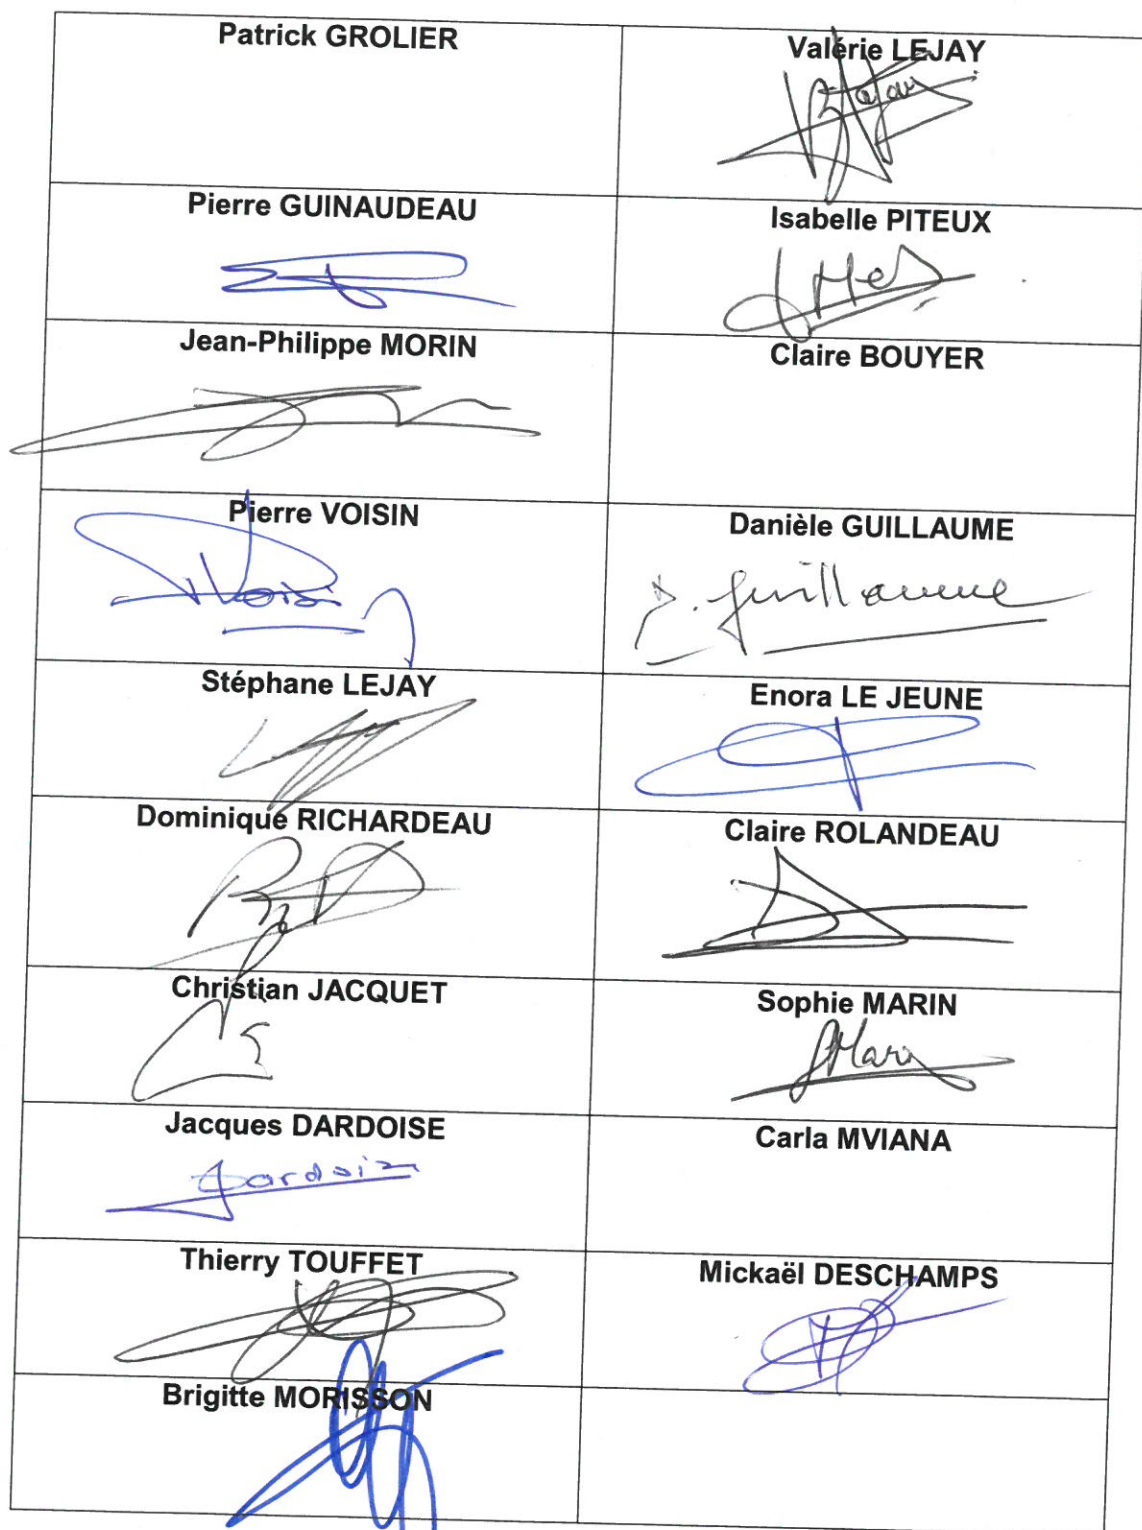 Patrick GROLIER
Valérie LEJAY
Pierre GUINAUDEAU
Isabelle PITEUX
Jean-Philippe MORIN
Claire BOUYER
Pierre VOISIN
Danièle GUILLAUME
D. Guillaume
Stéphane LEJAY
Enora LE JEUNE
Dominique RICHARDEAU
Claire ROLANDEAU
Christian JACQUET
Sophie MARIN
Jacques DARDOISE
Carla MVIANA
Thierry TOUFFET
Mickaël DESCHAMPS
Brigitte MORISSON